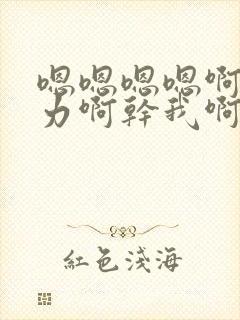 嗯嗯嗯嗯啊
力啊幹我啊
紅色淺海